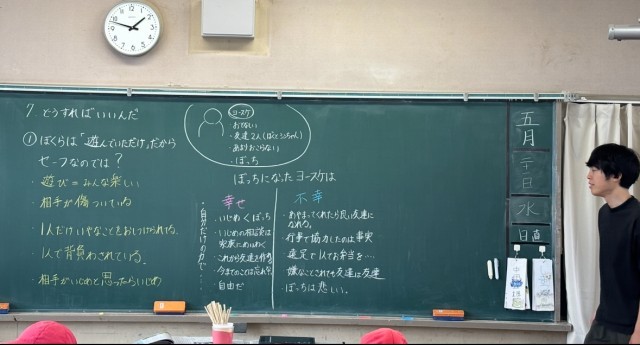 7. どうすればいいんだ
① ぼくらは「遊んでいただけ」だから
セーフなのでは？
・遊び＝みんな楽しい
・相手が傷ついている
・1人だけいやなことをおしつけられる
・1人で背負わされている。
・相手がいじめと思ったらいじめ
ヨースケ
・おとなしい
・あまりおこらない
・ぼっち
ぼっちになったヨースケは
幸せ
・自分だけの力で…
・いじめ＜ぼっち
・いじめの相談は
家族にめいわく
・これから友達を作る
・今までのことは忘れ？
・自由だ
不幸
・あやまってくれたら良い友達に
なれる。
・行事で協力したのは事実
・遠足で1人でお弁当を…
・嫌なことされても友達は友達
・ぼっちは悲しい。
五月
日
水
日直